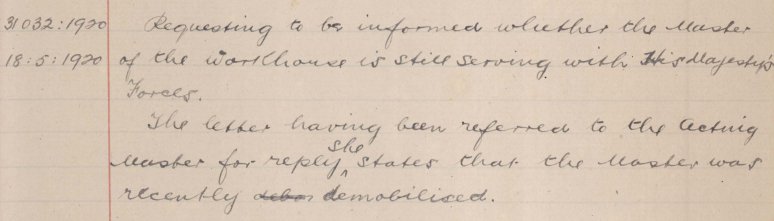 31032:1920 Requesting to be informed whether the Master
18:5:1920 of the Workhouse is still serving with His Majesty's
Forces.
The letter having been referred to the Acting
she
Master for reply states that the Master was
recently demobilised.